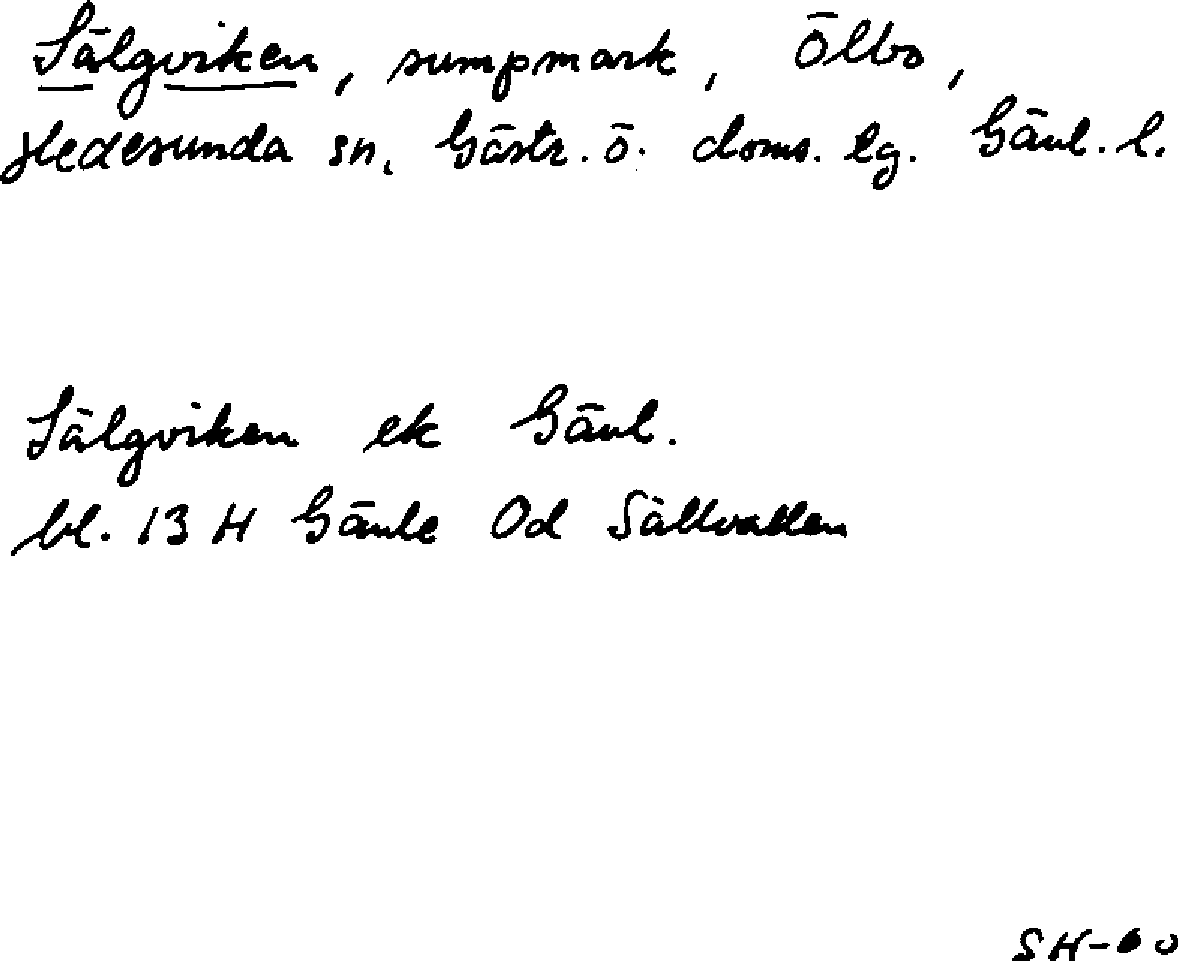 Sälgviken, sumpmark, Ölbo,
Hedesunda sn, Gästr. ö. doms. lg. Gävl. l.
Sälgviken ek Gävl.
bl. 13 H Gävle Od Sällvallen
SH-60